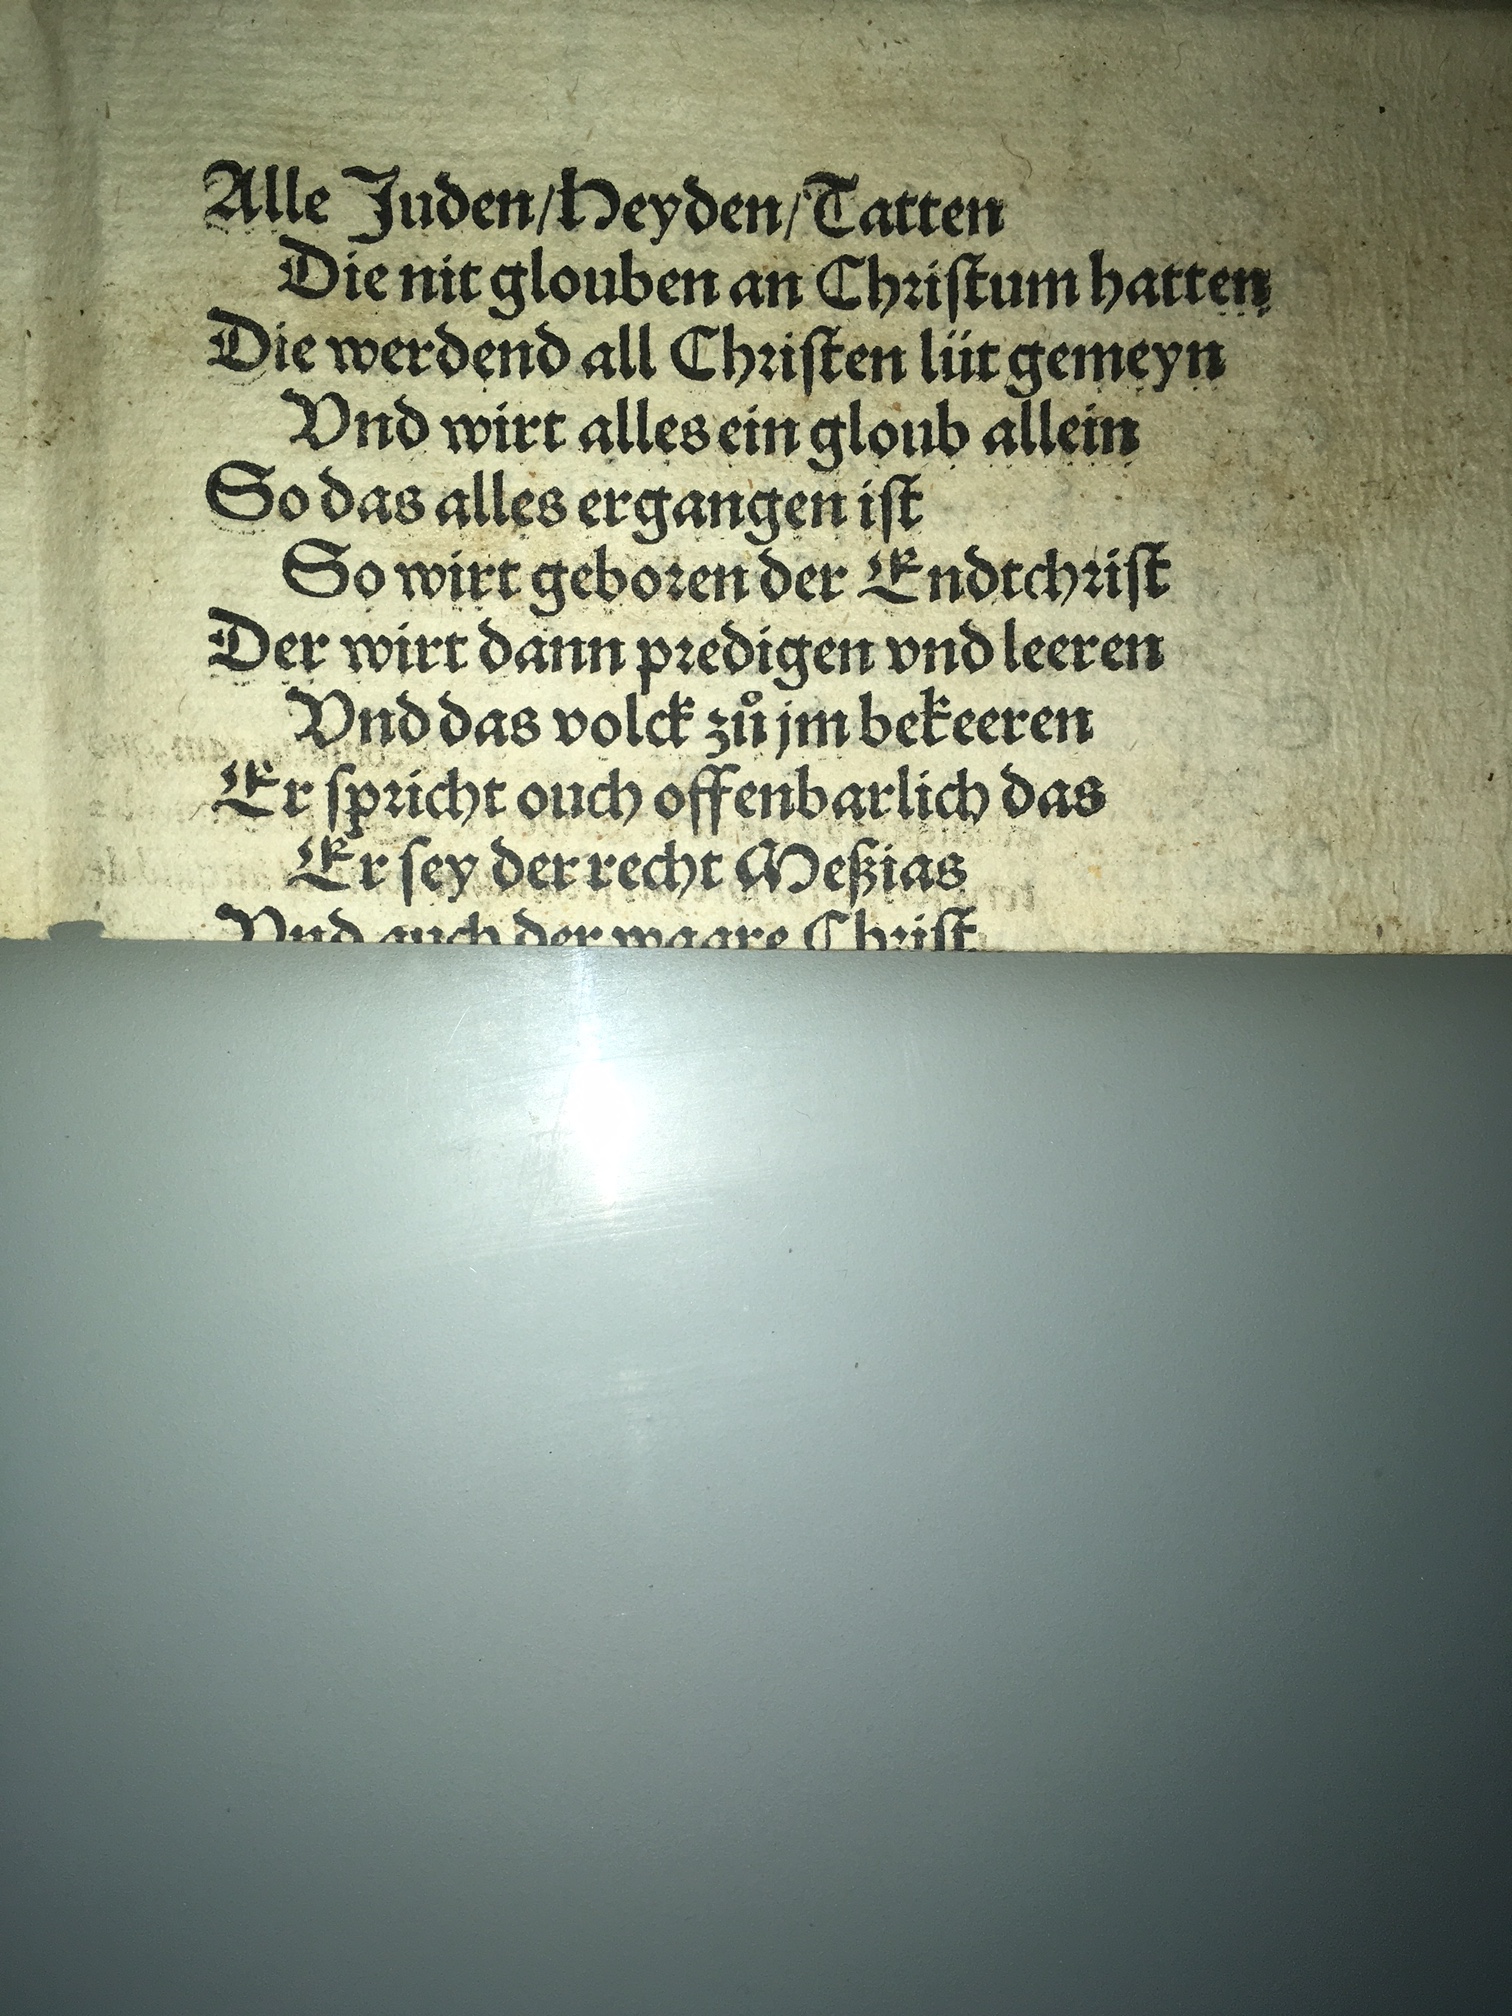 Alle Juden/Heyden/Tatten
Die nit glouben an Christum hatten
Die werdend all Christen lüt gemeyn
Vnd wirt alles ein gloub allein
So das alles ergangen ist
So wirt geboren der Endtchrist
Der wirt dann predigen vnd leeren
Vnd das volck zů jm bekeeren
Er spricht ouch offenbarlich das
Er sey der recht Meßias
Vnd auch der waare Christ